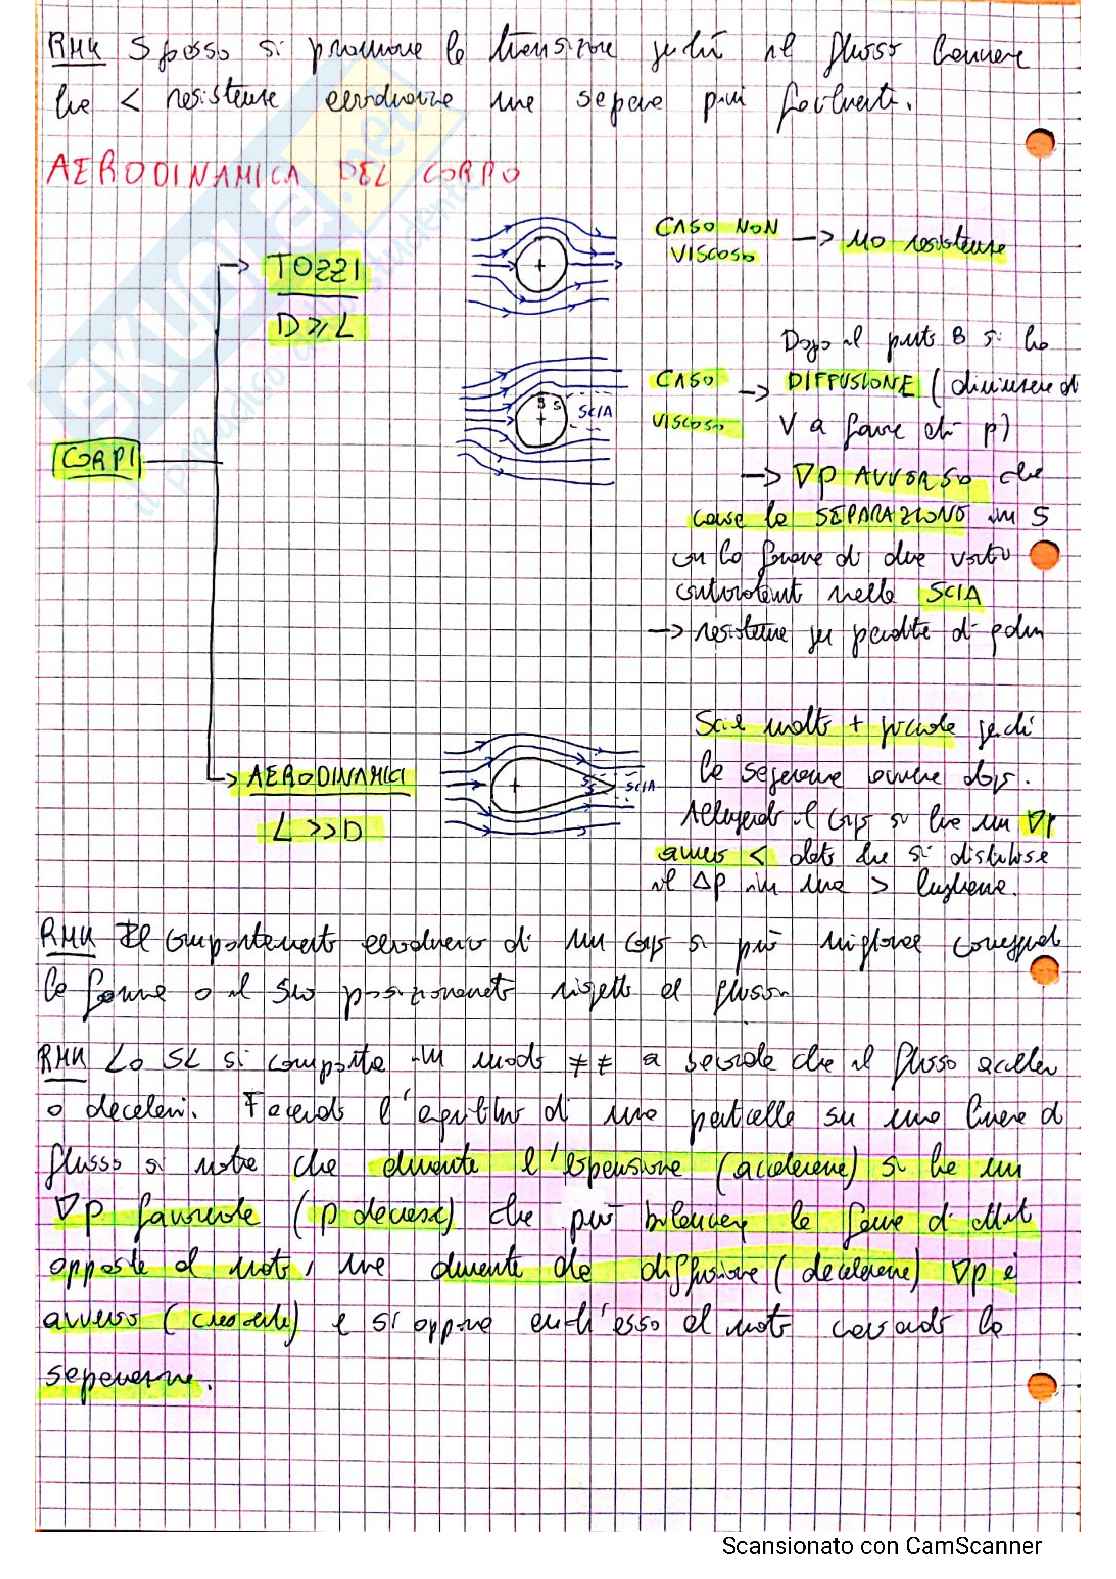 RMK Spesso si promuove la transizione perché il flusso laminare
ha < resistenza aerodinamica ma separa più facilmente.
AERODINAMICA DEL CORPO
CASO NON VISCOSO -> NO resistenza
TOZZI
D ≥ L
Dopo il punto B si ha
CASO VISCOSO -> DIFFUSIONE (diminuzione di
V a favore di p)
-> ∇p AVVERSO che
causa la SEPARAZIONE in S
B S
SCIA
CORPI
con la forma di due vortici
controrotanti nella SCIA
-> resistenza per perdite di pdin
Scia molto + piccola perché
la separazione avviene dopo.
AERODINAMICI
L >> D
S
S
SCIA
Allungando il corpo si ha un ∇p
avverso < dato che si distribuisce
il Δp in una > lunghezza.
RMK Il comportamento aerodinamico di un corpo si può migliorare correggendo
la forma o il suo posizionamento rispetto al flusso.
RMK Lo SL si comporta in modo ≠≠ a seconda che il flusso acceleri
o deceleri. Facendo l'equilibrio di una particella su una linea di
flusso si nota che durante l'espansione (accelerazione) si ha un
∇p favorevole (p decresce) che può bilanciare le forze di attrito
opposte al moto, ma durante la diffusione (decelerazione) ∇p è
avverso (crescente) e si oppone anch'esso al moto causando la
separazione.
Scansionato con CamScanner